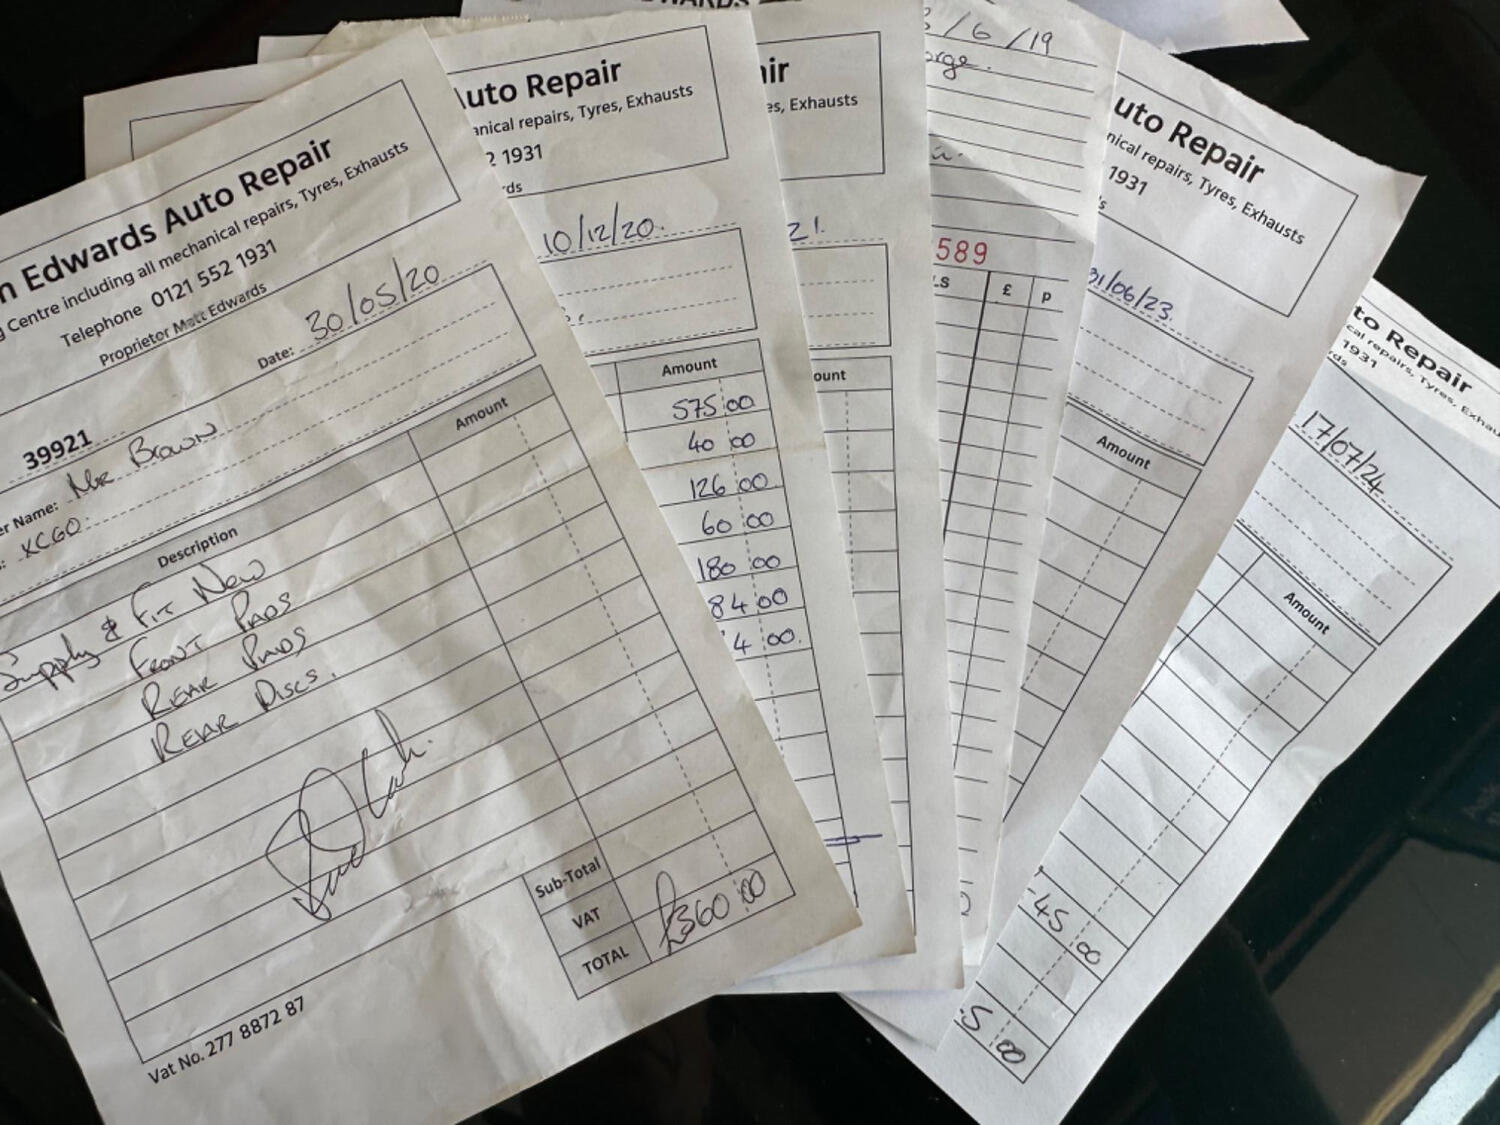 Edwards Auto Repair
Centre including all mechanical repairs, Tyres, Exhausts
Telephone 0121 552 1931
Proprietor Matt Edwards
Date: 30/05/20
39921
Name: Mr Brown
XC60
Description Amount
Supply & Fit New
Front Pads
Rear Pads
Rear Discs.
Sub-Total
VAT
TOTAL £360 00
Vat No. 277 8872 87
Auto Repair
mechanical repairs, Tyres, Exhausts
2 1931
10/12/20.
Amount
575 00
40 00
126 00
60 00
180 00
84 00
4 00.
Exhausts
21.
6/19
589
£ p
Auto Repair
repairs, Tyres, Exhausts
1931
/06/23
Amount
to Repair
repairs, Tyres,
1931
17/07/24
Amount
45 00
5 00